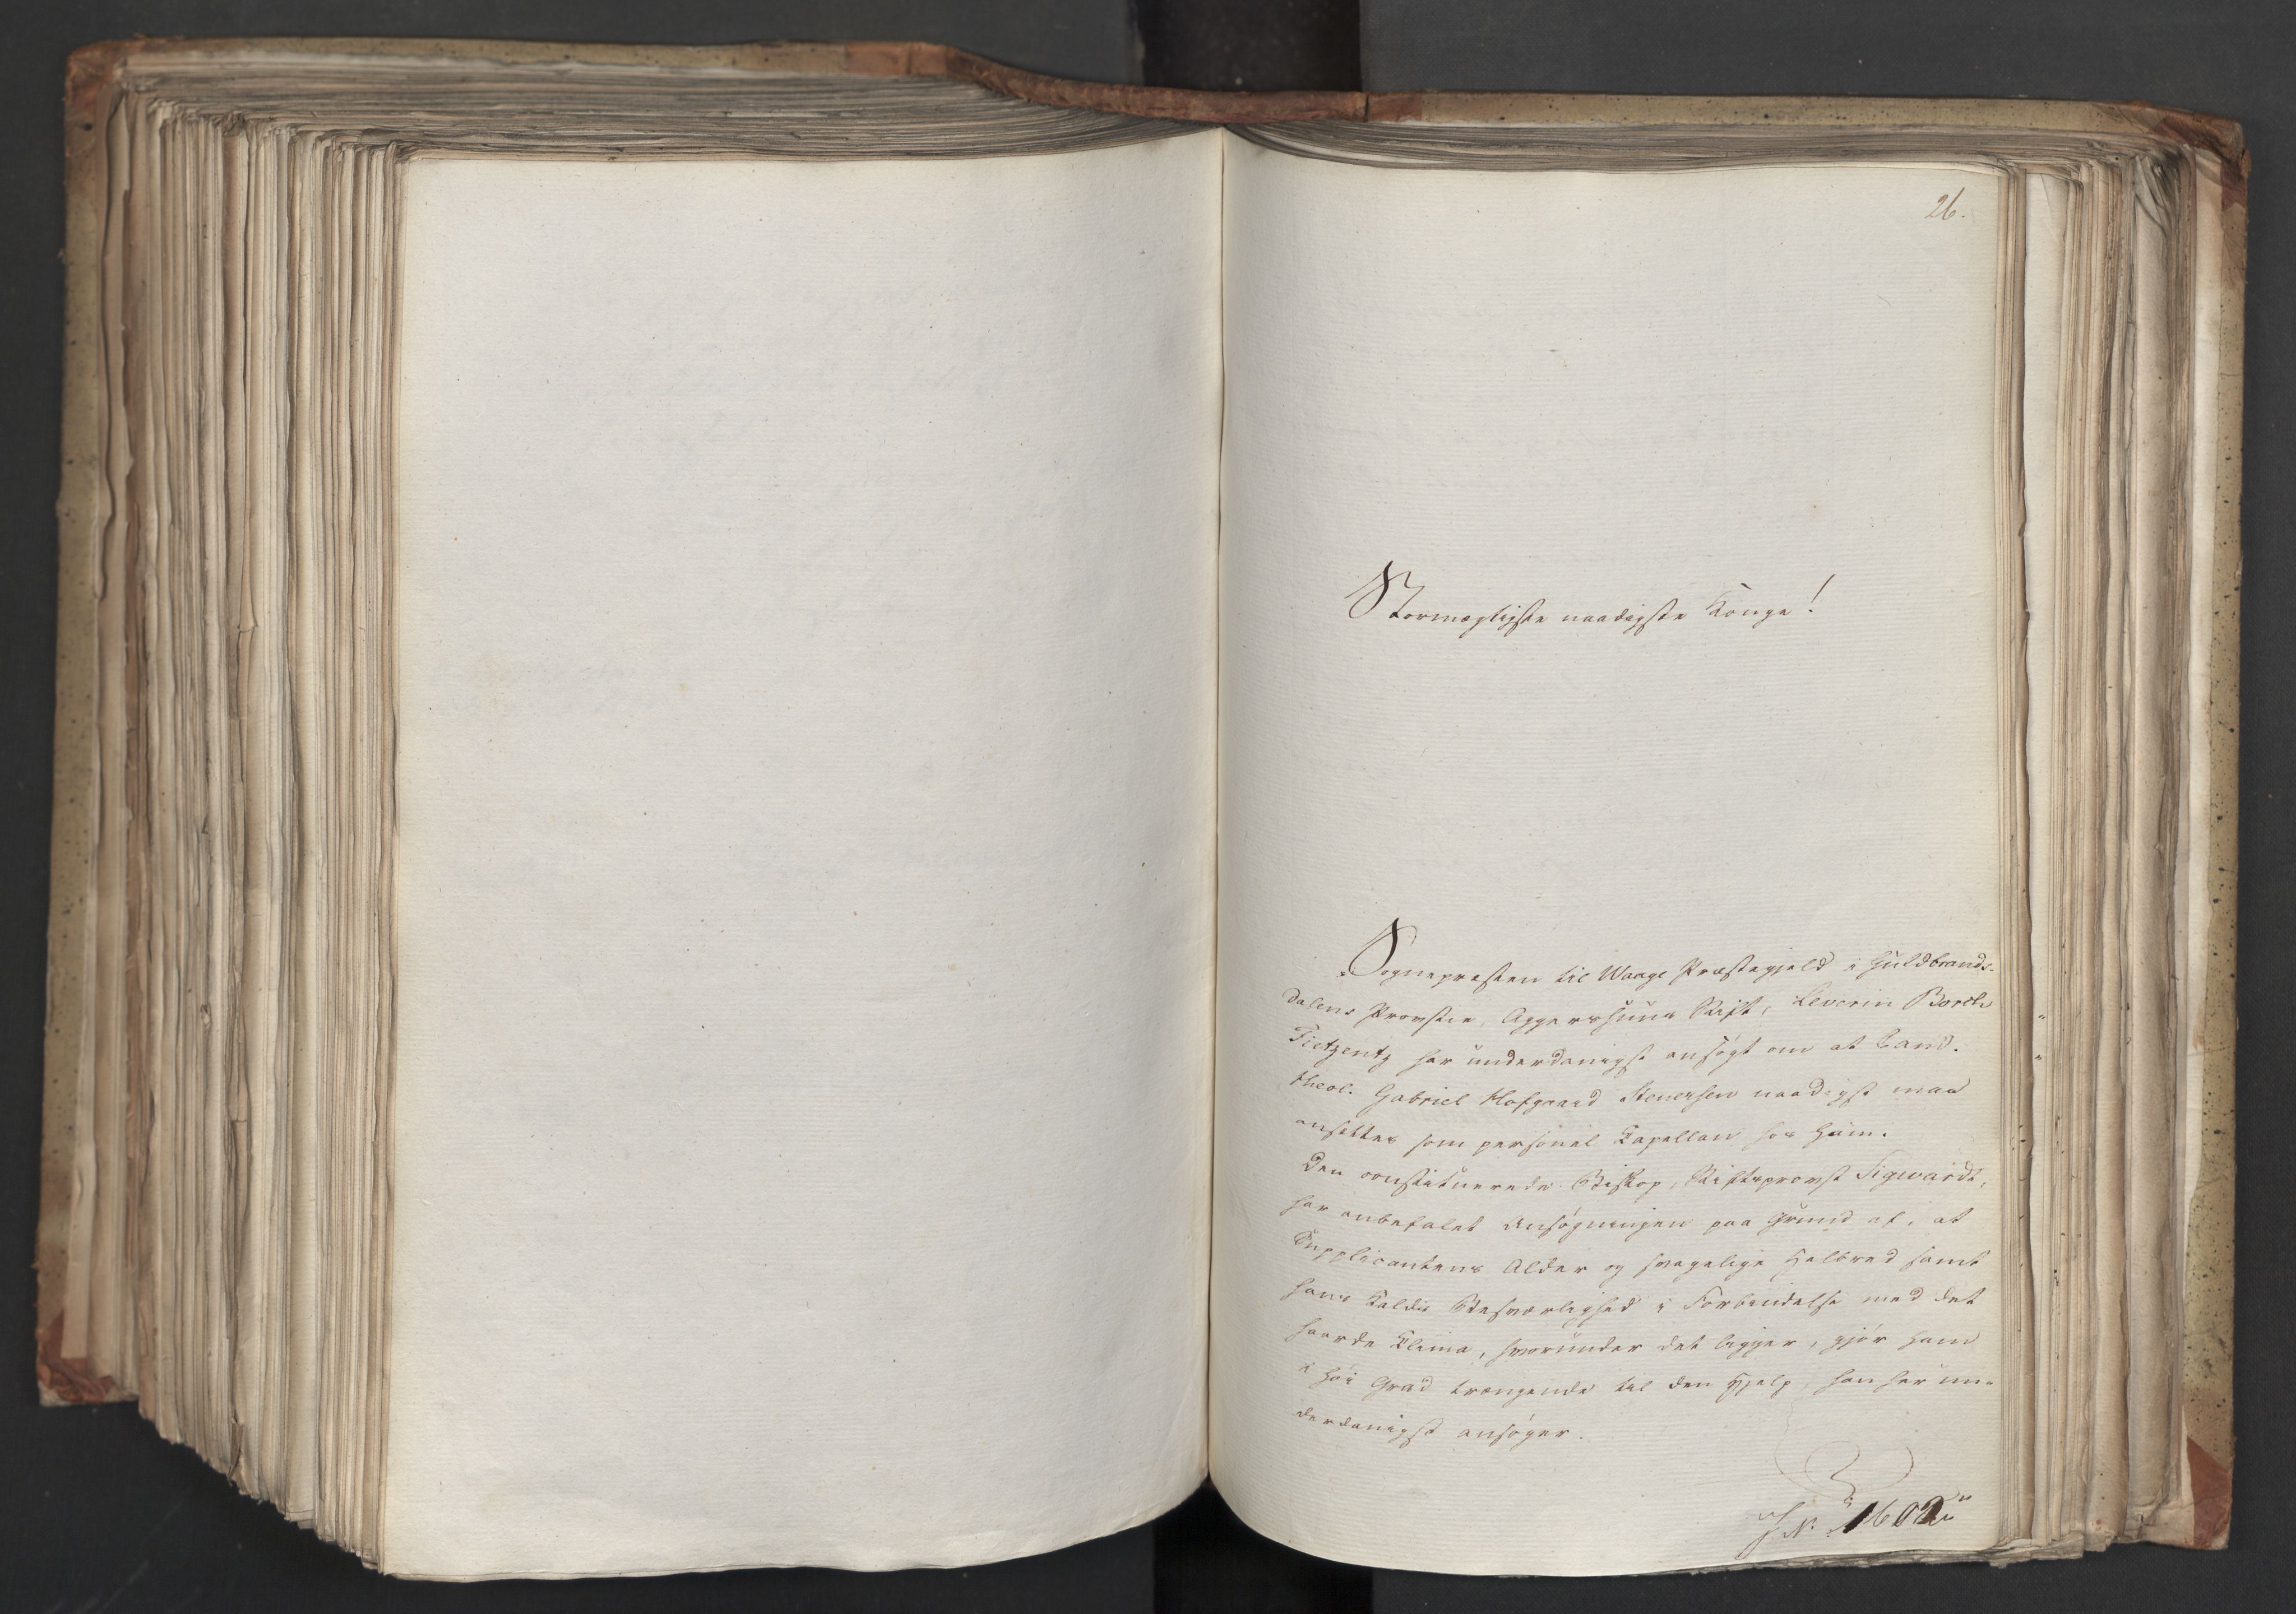 26.
Stormægtigste naadigste Konge!
Sognepresten til Waage Præstegjeld i Guldbrands-
dalens Provstie, Aggershuus Stift, Severin Borch
Tietzentz har underdanigst ansøgt om at Cand.
theol. Gabriel Hofgaard Stenersen naadigst maa
ansettes som personel Capellan hos Ham.
Den constituerede Biskop, Stiftsprovst Sigwardt,
har anbefalet Ansøgningen paa Grund af, at
Supplicantens Alder og svagelige Helbred samt
hans Kalds Besværlighed i Forbindelse med det
haarde Clima, hvorunder det ligger, gjør ham
i høi Grad trængende til den Hjelp, han her un-
derdanigst ansøger.